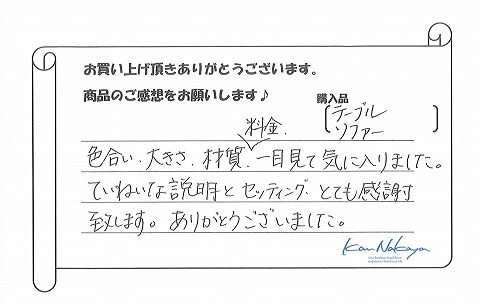 お買い上げ頂きありがとうございます。
商品のご感想をお願いします♪
購入品
テーブル
ソファー
料金.
色合い.大きさ.材質.一目見て気に入りました。
ていねいな説明とセッティング とても感謝
致します。ありがとうございました。